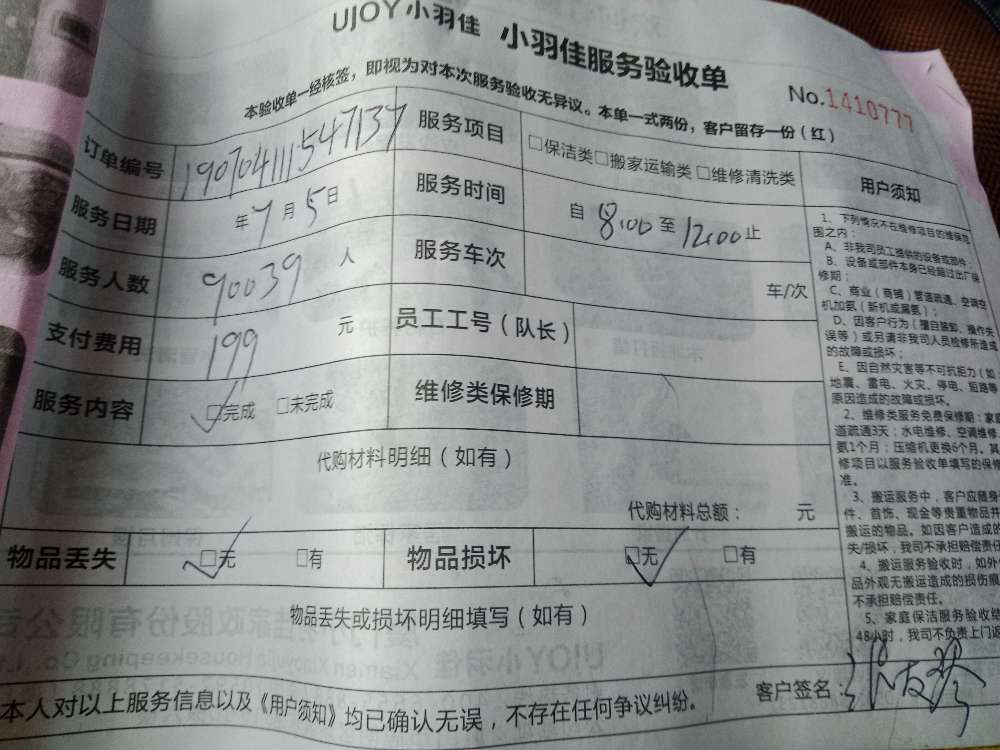 UJOY小羽佳 小羽佳服务验收单
No.1410777
本验收单一经核签，即视为对本次服务验收无异议。本单一式两份，客户留存一份（红）
订单编号 190704111547137 服务项目 □保洁类□搬家运输类□维修清洗类
服务日期 年7月5日 服务时间 自8:00至12:00止
服务人数 90039人 服务车次 车/次
支付费用 199元 员工工号（队长）
服务内容 □完成 □未完成 维修类保修期
代购材料明细（如有）
代购材料总额： 元
物品丢失 □无 □有 物品损坏 □无 □有
物品丢失或损坏明细填写（如有）
本人对以上服务信息以及《用户须知》均已确认无误，不存在任何争议纠纷。
客户签名：
用户须知
1、下列情况不在维修项目的维保范
围之内：
A、非我司员工提供的设备或部件；
B、设备或部件本身已经超过出厂保
修期；
C、商业（商铺）管道疏通、空调空
机加氨（新机或漏氨）；
D、因客户行为（擅自装卸、操作失
误等）或另请非我司人员检修所造成
的故障或损坏；
E、因自然灾害等不可抗拒力（如
地震、雷电、火灾、停电、短路等
原因造成的故障或损坏。
2、维修类服务免费保修期：家庭
道疏通3天；水电维修、空调维修
氨1个月；压缩机更换6个月。其
修项目以服务验收单填写的保修
准。
3、搬运服务中，客户应随身
件、首饰、现金等贵重物品并
搬运的物品。如因客户造成的
失/损坏，我司不承担赔偿责任
4、搬运服务验收时，如外
品外观无搬运造成的损伤痕
不承担赔偿责任。
5、家庭保洁服务验收结
48小时，我司不负责上门返